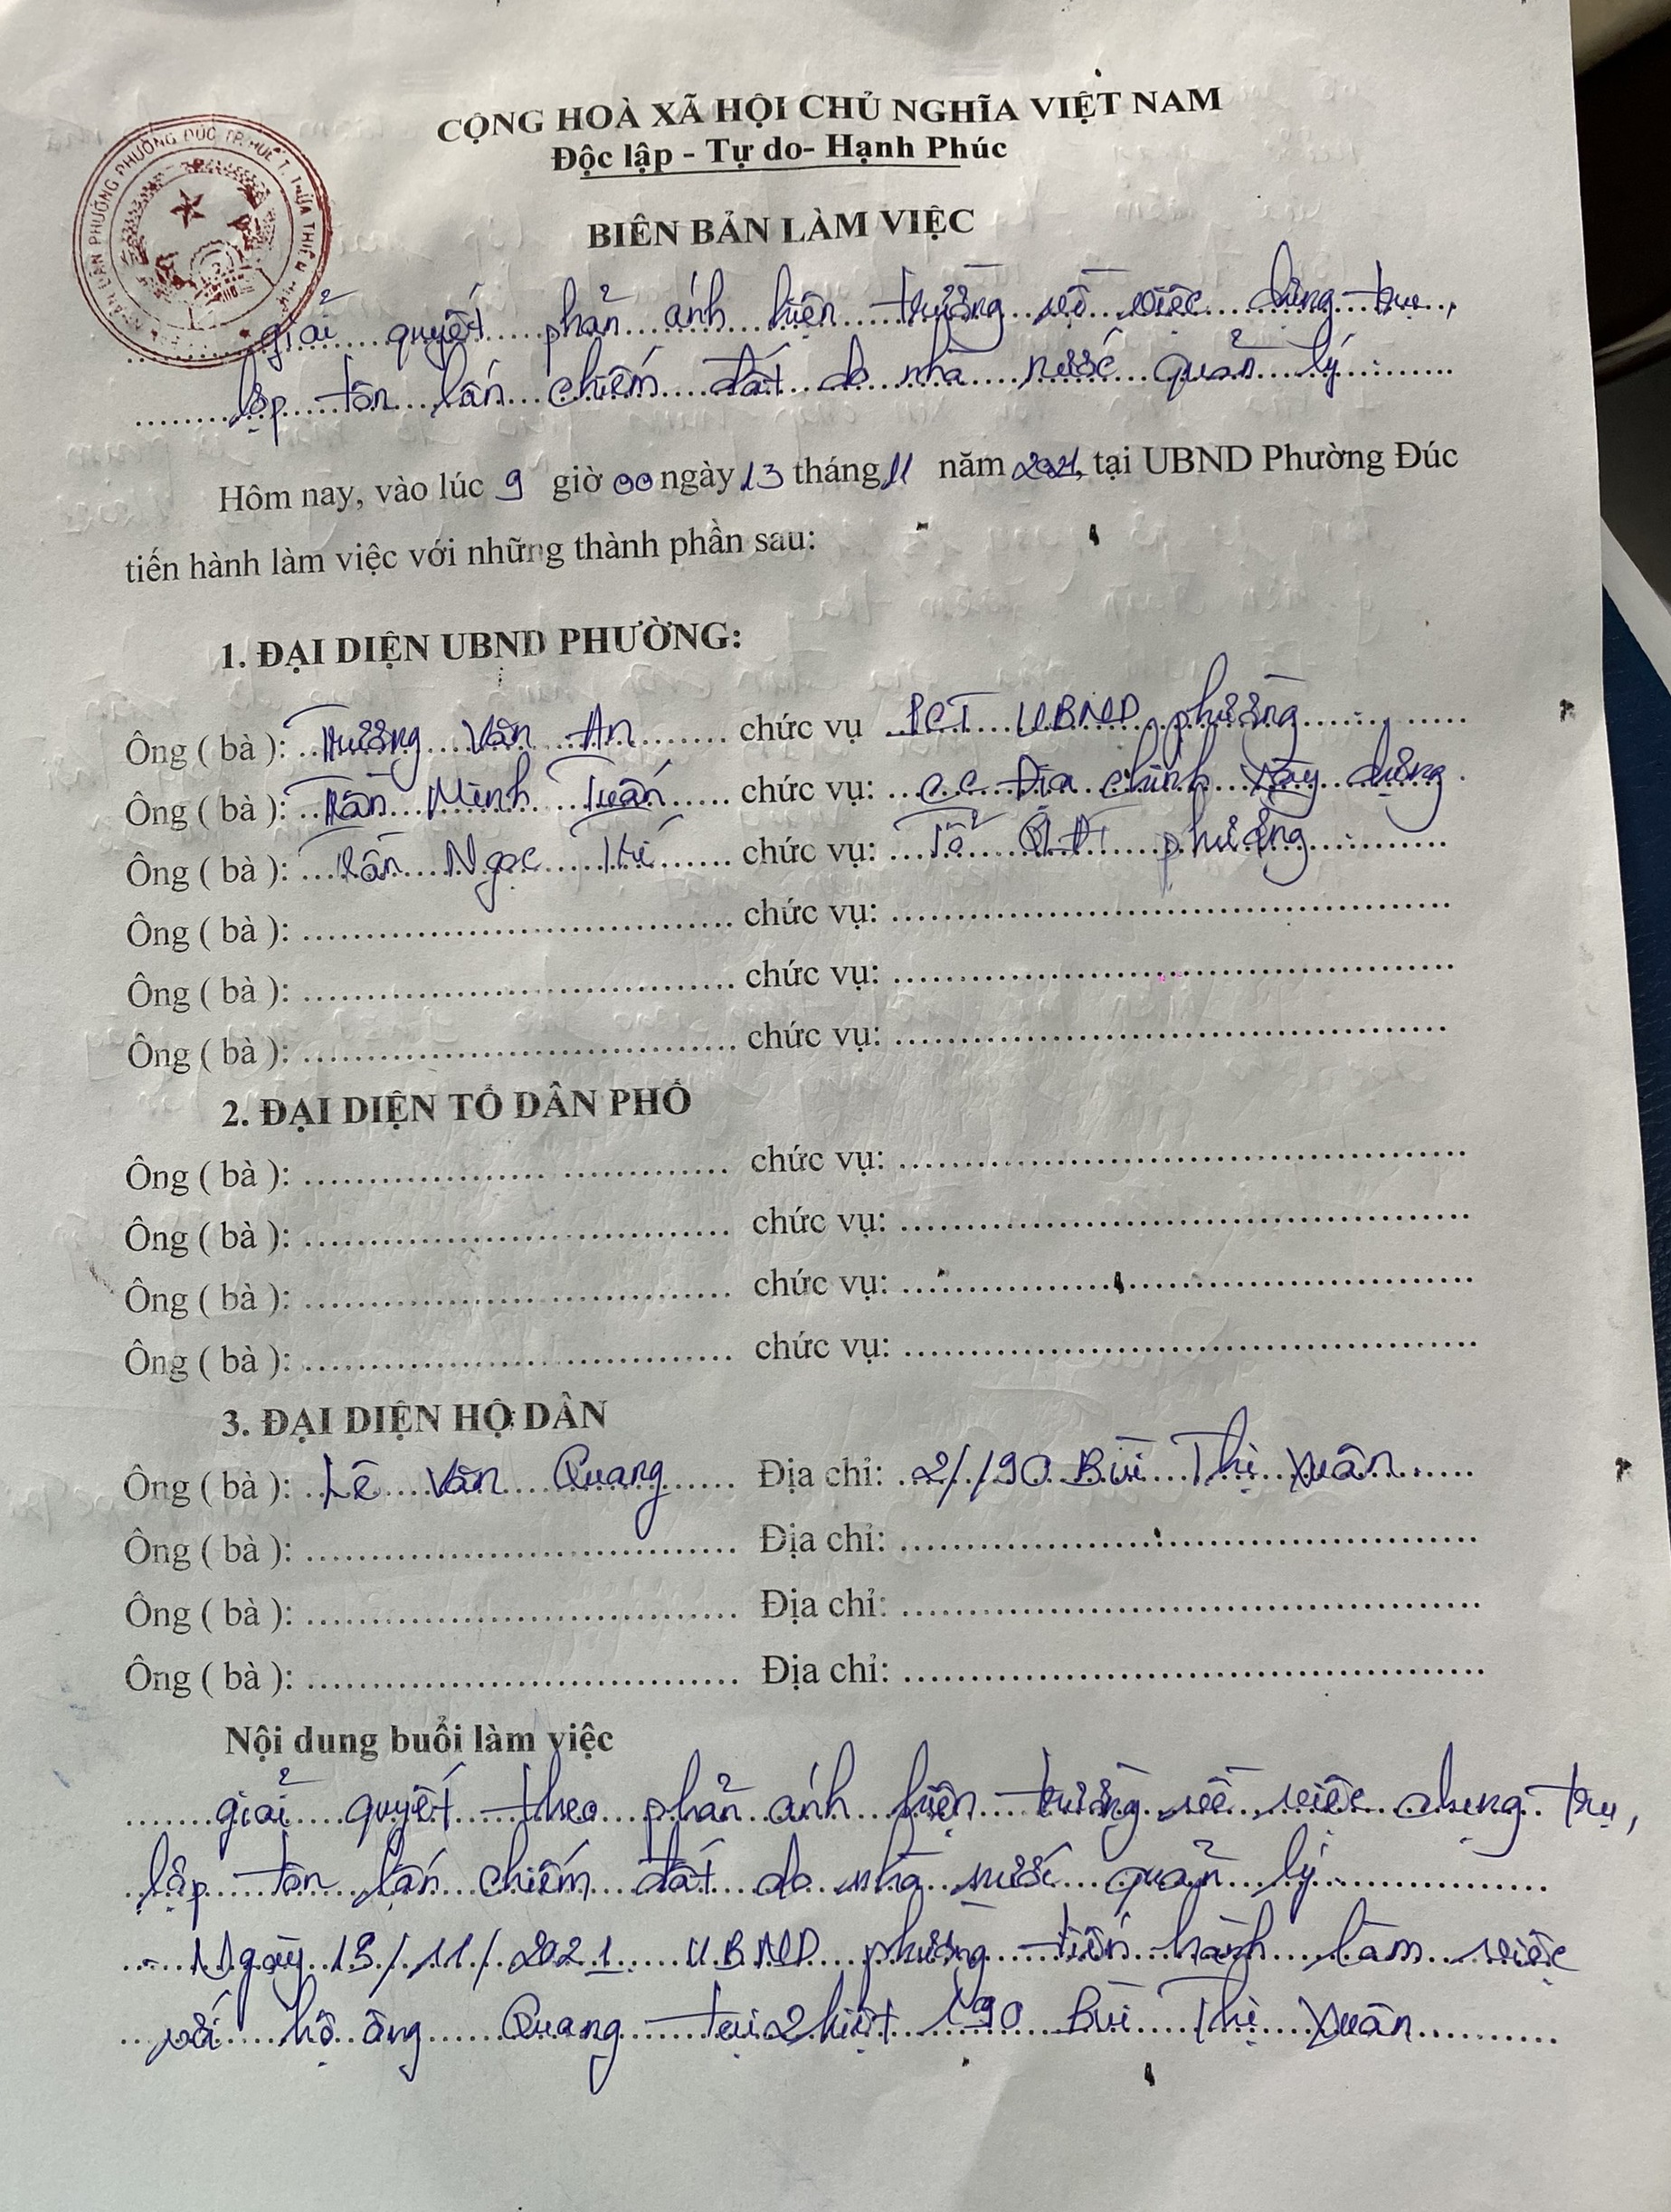 CỘNG HOÀ XÃ HỘI CHỦ NGHĨA VIỆT NAM
Độc lập - Tự do- Hạnh Phúc
BIÊN BẢN LÀM VIỆC
giải quyết phản ánh hiện trường về việc dựng trụ,
lợp tôn lấn chiếm đất do nhà nước quản lý
Hôm nay, vào lúc 9 giờ 00 ngày 13 tháng 11 năm 2021, tại UBND Phường Đúc
tiến hành làm việc với những thành phần sau:
1. ĐẠI DIỆN UBND PHƯỜNG:
Ông ( bà ): Trương Văn An chức vụ PCT UBND phường
Ông ( bà ): Trần Minh Tuấn chức vụ: CC Địa chính xây dựng
Ông ( bà ): Trần Ngọc chức vụ: Tổ phường
Ông ( bà ): chức vụ:
Ông ( bà ): chức vụ:
Ông ( bà ): chức vụ:
2. ĐẠI DIỆN TỔ DÂN PHỐ
Ông ( bà ): chức vụ:
Ông ( bà ): chức vụ:
Ông ( bà ): chức vụ:
Ông ( bà ): chức vụ:
3. ĐẠI DIỆN HỘ DÂN
Ông ( bà ): Lê Văn Quang Địa chỉ: 2/190 Bùi Thị Xuân
Ông ( bà ): Địa chỉ:
Ông ( bà ): Địa chỉ:
Ông ( bà ): Địa chỉ:
Nội dung buổi làm việc
giải quyết theo phản ánh hiện trường về việc dựng trụ,
lợp tôn lấn chiếm đất do nhà nước quản lý
- Ngày 13/11/2021 UBND phường tiến hành làm việc
với hộ ông Quang tại 2 kiệt 190 Bùi Thị Xuân